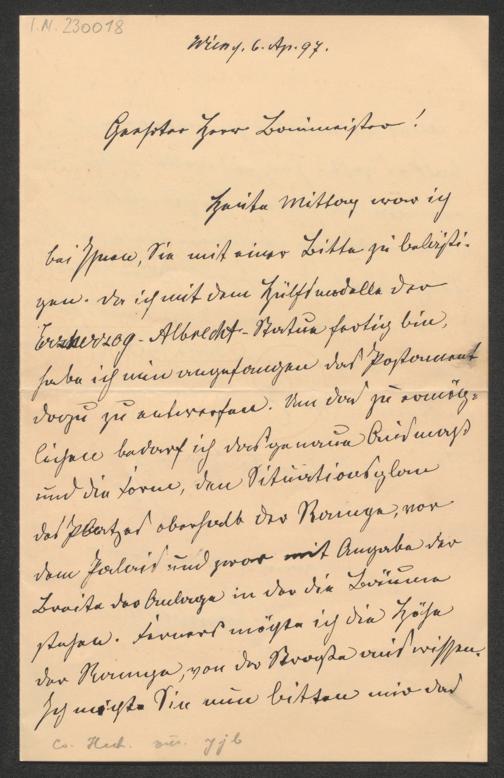 I.N. 230018
Wien, 6. Ap. 97.
Geehrter Herr Baumeister!
Heute Mittag war ich
bei Ihnen, Sie mit einer Bitte zu belästi-
gen. Da ich mit dem Hülfsmodelle der
Erzherzog-Albrecht-Statue fertig bin,
habe ich nun angefangen das Postament
dazu zu entwerfen. Um das zu ermög-
lichen bedarf ich das genaue Ausmaß
und die Form, den Situationsplan
des Platzes oberhalb der Rampe, vor
dem Palais und zwar mit Angabe der
Breite der Anlage in der die Bäume
stehen. Ferners möchte ich die Höhe
der Rampe, von der Straße aus wissen.
Ich möchte Sie nun bitten mir das